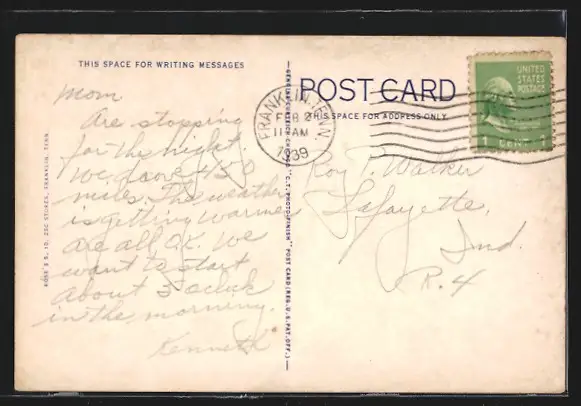 THIS SPACE FOR WRITING MESSAGES
Mom
Are stopping
for the night.
We drove 450
miles. The weather
is getting warmer
are all O.K. We
want to start
about 5 oclock
in the morning.
Kenneth
ROSE'S 5, 10, 25C STORES, FRANKLIN, TENN.
GENUINE CURTEICH-CHICAGO "C.T. PHOTO-FINISH" POST CARD (REG. U.S. PAT. OFF.)
POST CARD
THIS SPACE FOR ADDRESS ONLY
FRANKLIN, TENN.
FEB 2
11 AM
1939
UNITED
STATES
POSTAGE
1 CENT 1
Roy P. Walker
Lafayette,
Ind.
R. 4